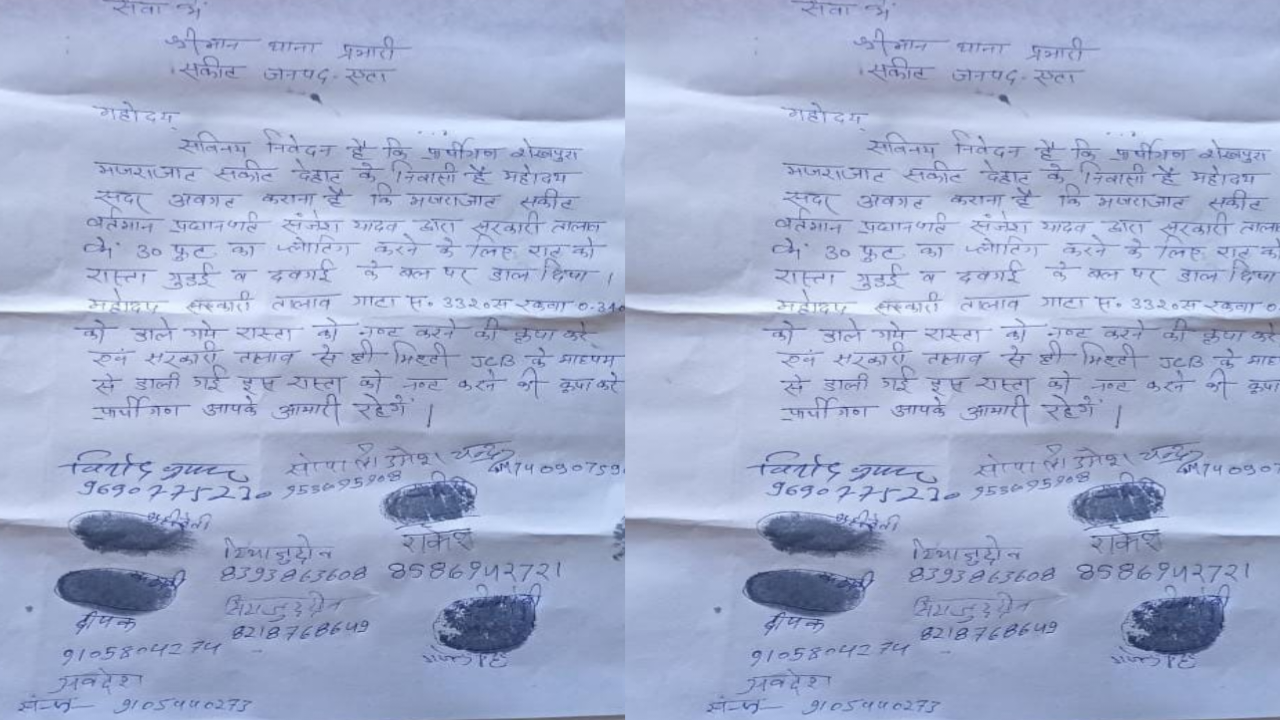 सेवा में
श्रीमान थाना प्रभारी
सकीट जनपद-एटा
महोदय
सविनय निवेदन है कि प्रार्थीगण शेखपुरा
मजराजाट सकीट देहात के निवासी है महोदय
सदर अवगत कराना है कि मजराजाट सकीट
वर्तमान प्रधानपति संजेश यादव द्वारा सरकारी तालाब
में 30 फुट का प्लोटिंग करने के लिए राह को
रास्ता गुडई व दवगई के बल पर डाल दिया।
महोदय सरकारी तालाव गाटा स० 332 ०स रकवा 0.340
को डाले गये रास्ता को नष्ट करने की कृपा करे
एवं सरकारी तालाव से ही मिट्टी JCB के माध्यम
से डाली गई इस रास्ता को नष्ट करने की कृपा करे
प्रार्थीगण आपके आभारी रहेगें।
विनोद कुमार
उमेश चन्द्र
9690775230
राकेश
रियाजुद्दीन
8393863608
8586942721
सिराजुद्दीन
8218768649
दीपक
9105804274
अवदेश
9105440273